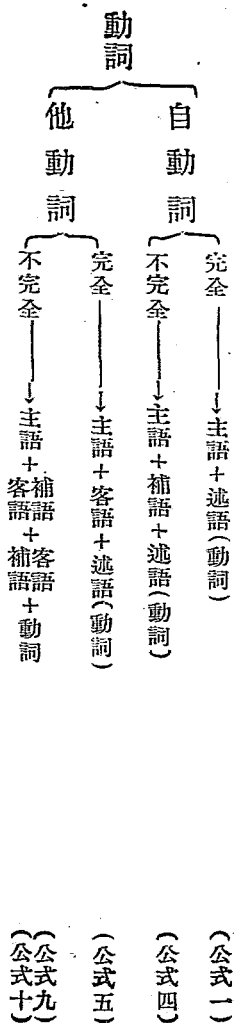 動詞
自動詞
完全――→主語+述語(動詞) (公式一)
不完全――→主語+補語+述語(動詞) (公式四)
他動詞
完全――→主語+客語+述語(動詞) (公式五)
不完全――→主語+補語+客語+動詞 (公式九)
客語+補語 (公式十)